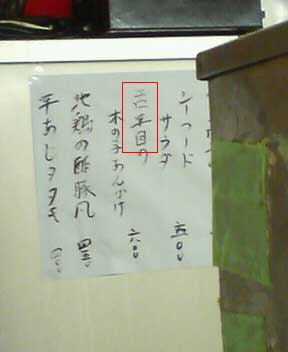 シーフード
サラダ
五〇〇
舌平目の
木の子あんかけ
六〇〇
地鶏の酢豚風
四五〇
平あじタタキ